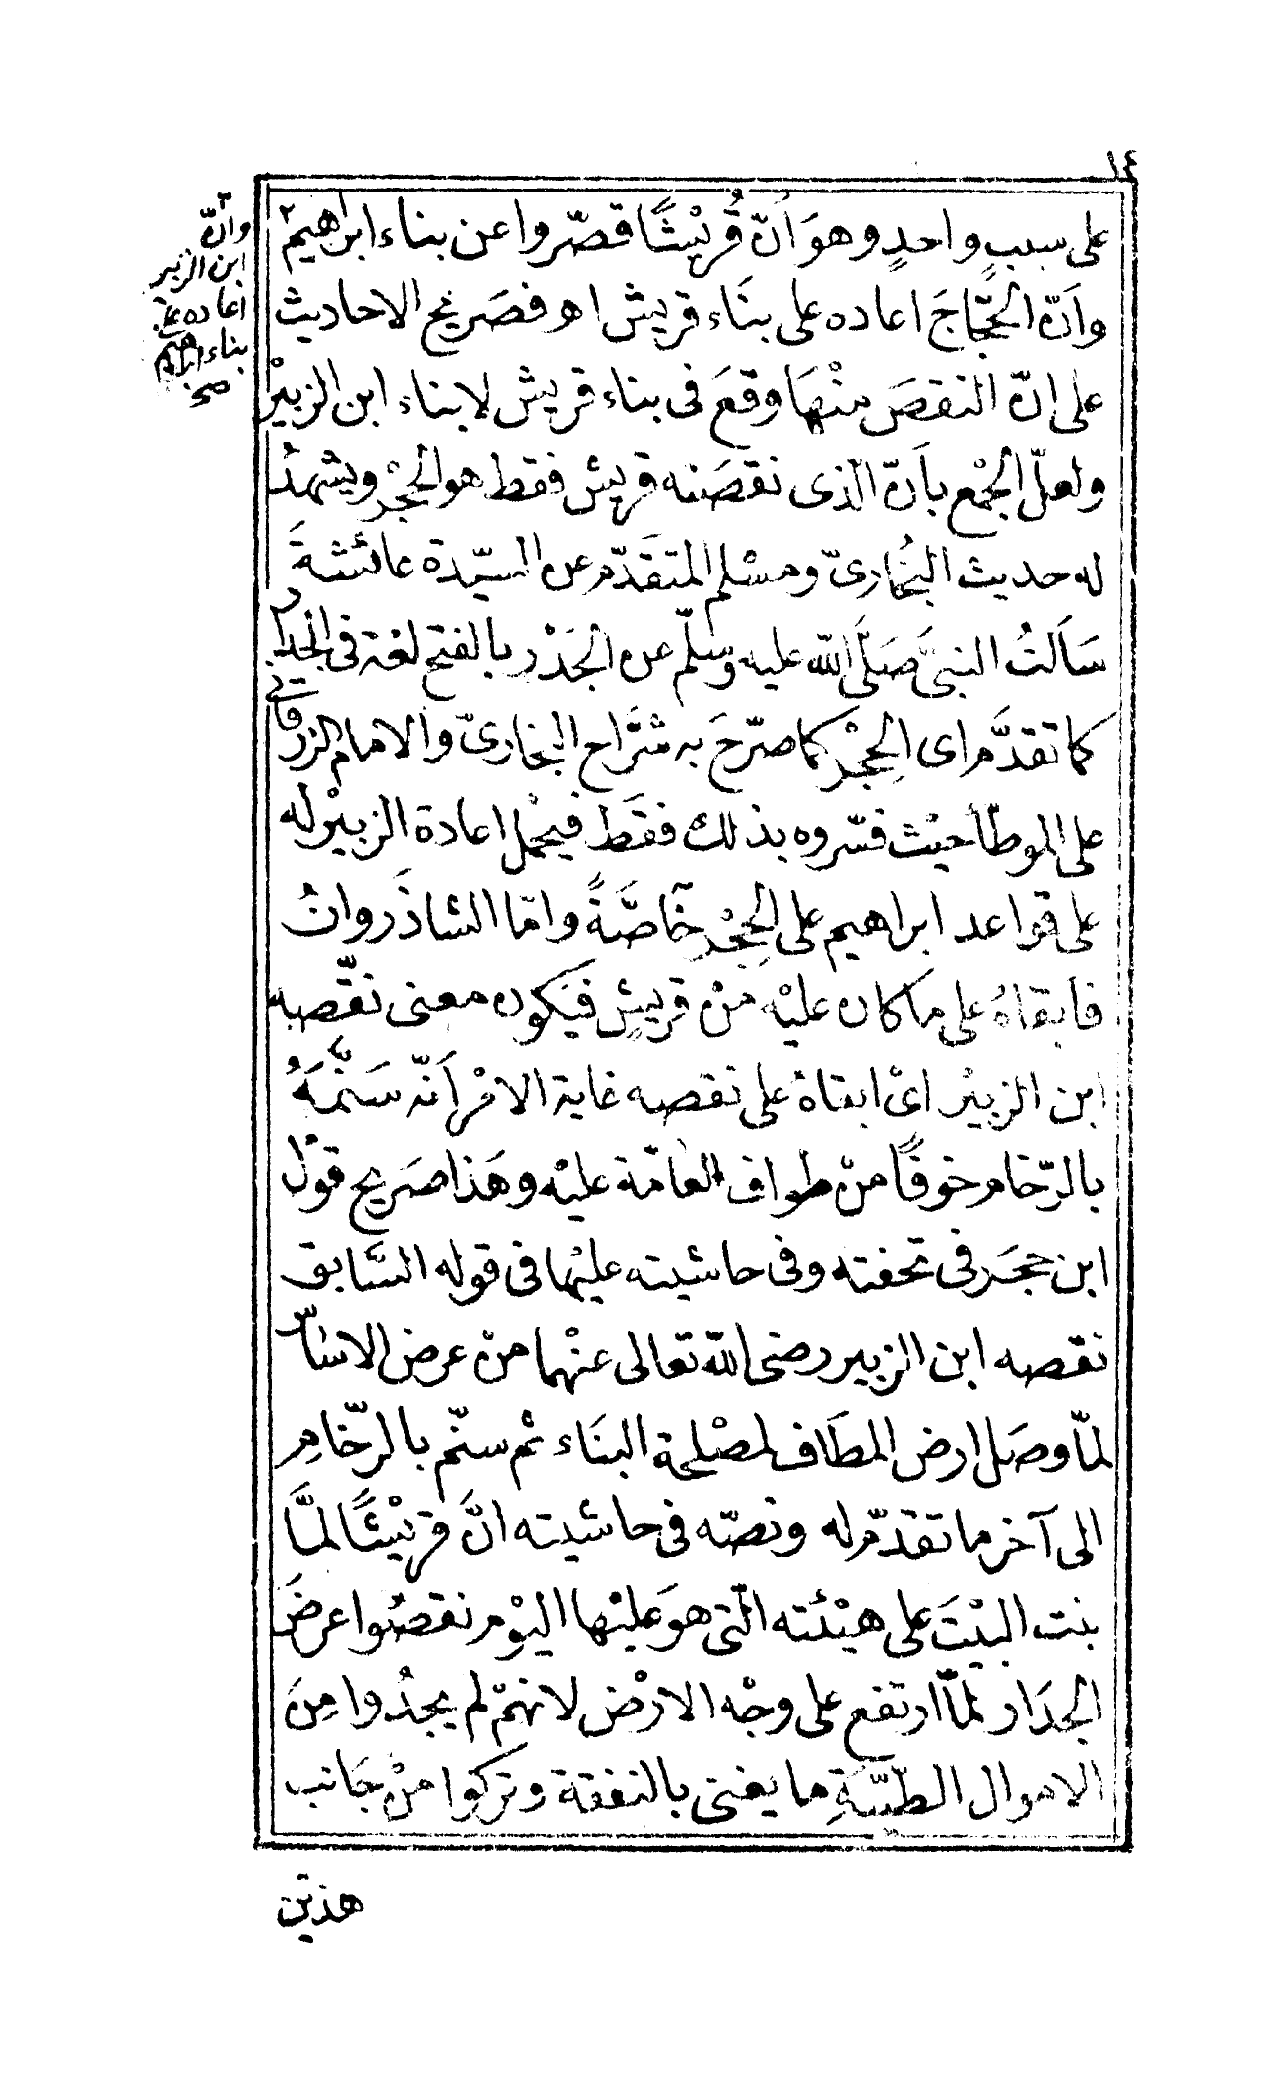 ١٤
على سببٍ واحدٍ وهوَ اَنّ قُرَيْشًا قصّروا عن بناء ابراهيم ٢
٢ وانّ
ابن الزبير
اعاده على
بناء ابراهيم
صح
واَنّ الحَجّاجَ اعاده على بنَاء قريش اهـ فصَريحُ الاحاديث
على انّ النقصَ منْهَا وقعَ فى بناء قريش لا بناء ابن الزبيْر
ولعلّ الجمْع باَنّ الّذى نقصَته قريش فقط هو الحِجْر ويشهدُ
له حديث البُخارىّ ومسْلم المتقدّم عن السيّدة عائشةَ
سَاَلتُ النبىَّ صَلَّى اللّه عليه وسلّم عن الجَدْر بالفتح لغة فى الجدار
كما تقدَّم اى الحِجْر كما صرّحَ به شرَّاح البخارىّ والامام الزرقانى
على الموطّأ حيْث فسّروه بذلك فقَط فيحْمل اعادة الزبيْر له
على قواعد ابراهيم على الحِجْر خاصَّةً وامّا الشاذَروانُ
فابقاهُ على ما كان عليْه منْ قريشٍ فيَكون معنى نقّصه
ابن الزبيْر اىْ ابقاهُ على نقصه غاية الامْر اَنّه سَنَّمَهُ
بالرّخام خوفًا منْ طواف العامّة عليْه وهَذا صَريح قوْل
ابن حجَر فى تحفته وفى حاشيته عليْها فى قوله السَّابق
نقصه ابن الزبير رضى اللّه تعالى عنْهما منْ عرض الاسَاس
لمّا وصَل ارض المطَاف لمصْلحة البنَاء ثم سنّم بالرّخامِ
الى آخر ما تقدّم له ونصّه فى حاشيته انَّ قريْشًا لمَّا
بنت البيْتَ على هيْئته الّتى هوَ عليْها اليوْم نقصُوا عرضَ
الجدَار لمّا ارتفع على وجْه الارْض لانهمْ لم يجدُوا مِنَ
الاموال الطيّبَةِ ما يفى بالنفقة وتركوا منْ جَانب
هذين